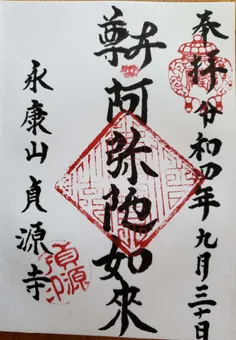 奉拝 令和四年九月三十日
本尊
阿弥陀如來
永康山 貞源寺